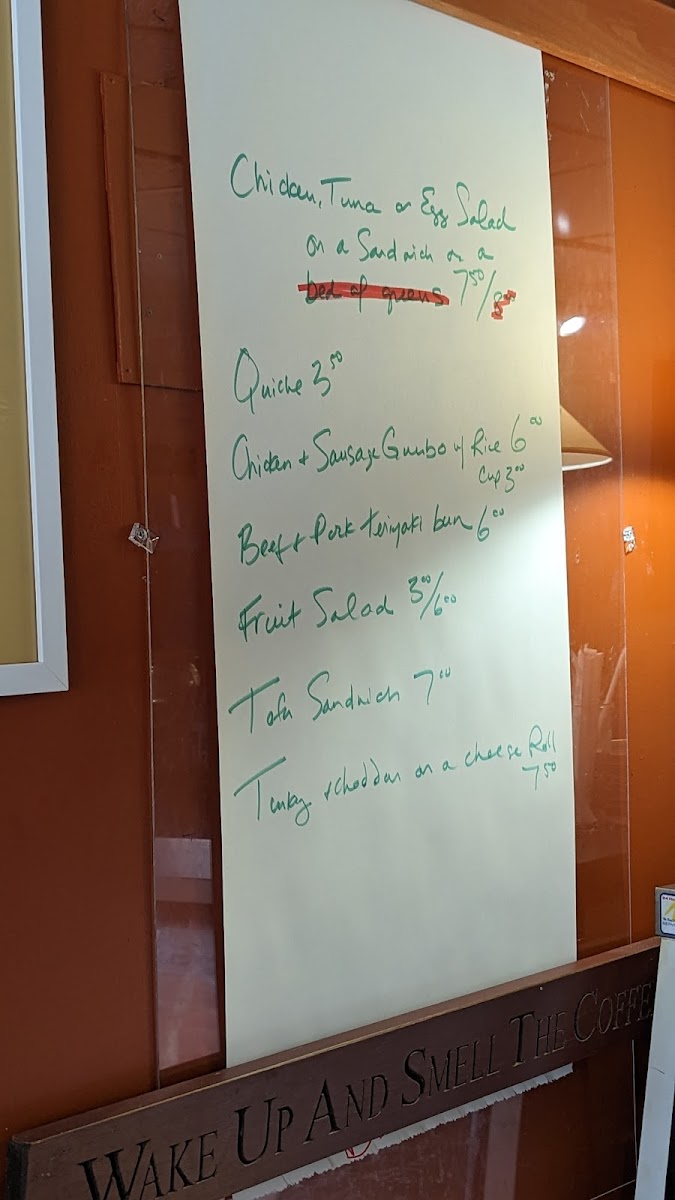 Chicken, Tuna or Egg Salad
on a Sandwich or a
bed of greens 7.50/8.00
Quiche 3.50
Chicken + Sausage Gumbo w/ Rice 6.00
Cup 3.00
Beef + Pork teriyaki bun 6.00
Fruit Salad 3.00/6.00
Tofu Sandwich 7.00
Turkey + cheddar on a cheese Roll
7.50
WAKE UP AND SMELL THE COFFE